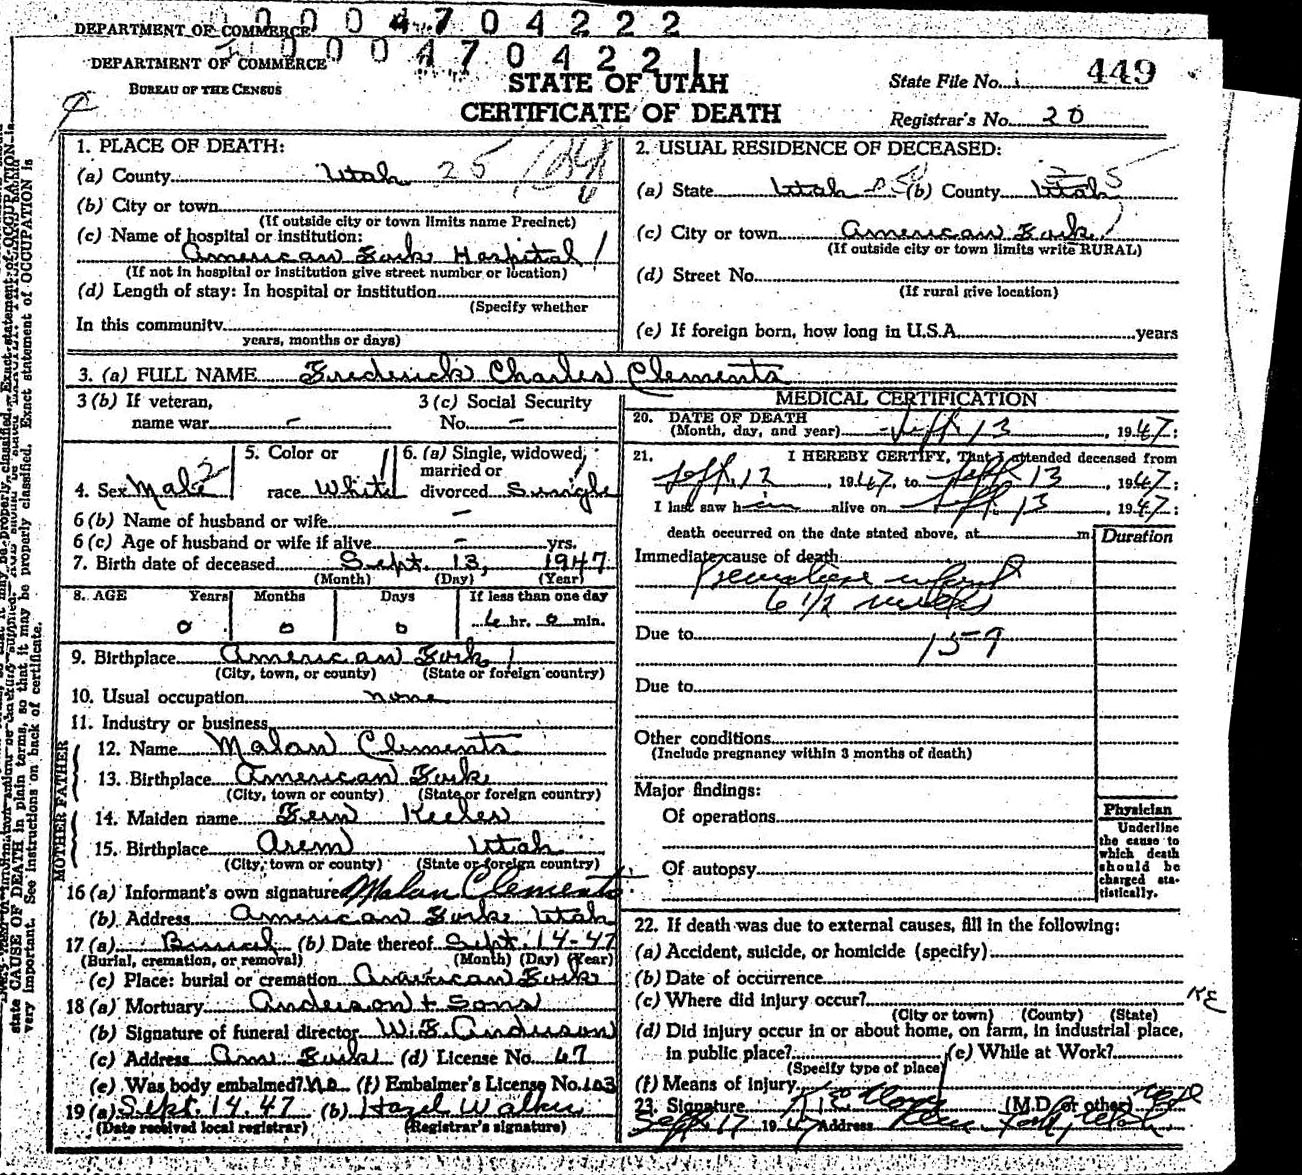 0004704222
DEPARTMENT OF COMMERCE
0004704221
DEPARTMENT OF COMMERCE
BUREAU OF THE CENSUS
STATE OF UTAH
CERTIFICATE OF DEATH
State File No. 449
Registrar's No. 20
1. PLACE OF DEATH:
(a) County Utah 25
(b) City or town
(If outside city or town limits name Precinct)
(c) Name of hospital or institution:
American Fork Hospital
(If not in hospital or institution give street number or location)
(d) Length of stay: In hospital or institution
(Specify whether
In this community
years, months or days)
2. USUAL RESIDENCE OF DECEASED:
(a) State Utah (b) County Utah
(c) City or town American Fork
(If outside city or town limits write RURAL)
(d) Street No.
(If rural give location)
(e) If foreign born, how long in U.S.A. years
3. (a) FULL NAME Frederick Charles Clements
3 (b) If veteran, name war –
3 (c) Social Security No. –
4. Sex Male
5. Color or race White
6. (a) Single, widowed, married or divorced Single
6 (b) Name of husband or wife –
6 (c) Age of husband or wife if alive – yrs.
7. Birth date of deceased Sept. 13, 1947
(Month) (Day) (Year)
8. AGE Years Months Days If less than one day
0 0 0 6 hr. 0 min.
9. Birthplace American Fork
(City, town, or county) (State or foreign country)
10. Usual occupation none
11. Industry or business
FATHER
12. Name Malan Clements
13. Birthplace American Fork
(City, town or county) (State or foreign country)
MOTHER
14. Maiden name Fern Keeler
15. Birthplace Orem Utah
(City, town or county) (State or foreign country)
16 (a) Informant's own signature Malan Clements
(b) Address American Fork Utah
17 (a) Burial (b) Date thereof Sept. 14-47
(Burial, cremation, or removal) (Month) (Day) (Year)
(c) Place: burial or cremation American Fork
18 (a) Mortuary Anderson + Sons
(b) Signature of funeral director W.E. Anderson
(c) Address Am. Fork (d) License No. 67
(e) Was body embalmed? No (f) Embalmer's License No. 103
19 (a) Sept. 14. 47 (b) Hazel Walker
(Date received local registrar) (Registrar's signature)
MEDICAL CERTIFICATION
20. DATE OF DEATH
(Month, day, and year) Sept 13, 1947:
21. I HEREBY CERTIFY, That I attended deceased from
Sept. 12, 1947, to Sept 13, 1947;
I last saw him alive on Sept. 13, 1947;
death occurred on the date stated above, at m.
Duration
Immediate cause of death
Premature infant
6 1/2 months
Due to 159
Due to
Other conditions
(Include pregnancy within 3 months of death)
Major findings:
Of operations
Of autopsy
Physician
Underline the cause to which death should be charged statistically.
22. If death was due to external causes, fill in the following:
(a) Accident, suicide, or homicide (specify)
(b) Date of occurrence
(c) Where did injury occur?
(City or town) (County) (State)
(d) Did injury occur in or about home, on farm, in industrial place,
in public place? (e) While at Work?
(Specify type of place)
(f) Means of injury
23. Signature (M.D. or other)
Sept 17 1947 Address
state CAUSE OF DEATH in plain terms, so that it may be properly classified. Exact statement of OCCUPATION is
very important. See instructions on back of certificate.